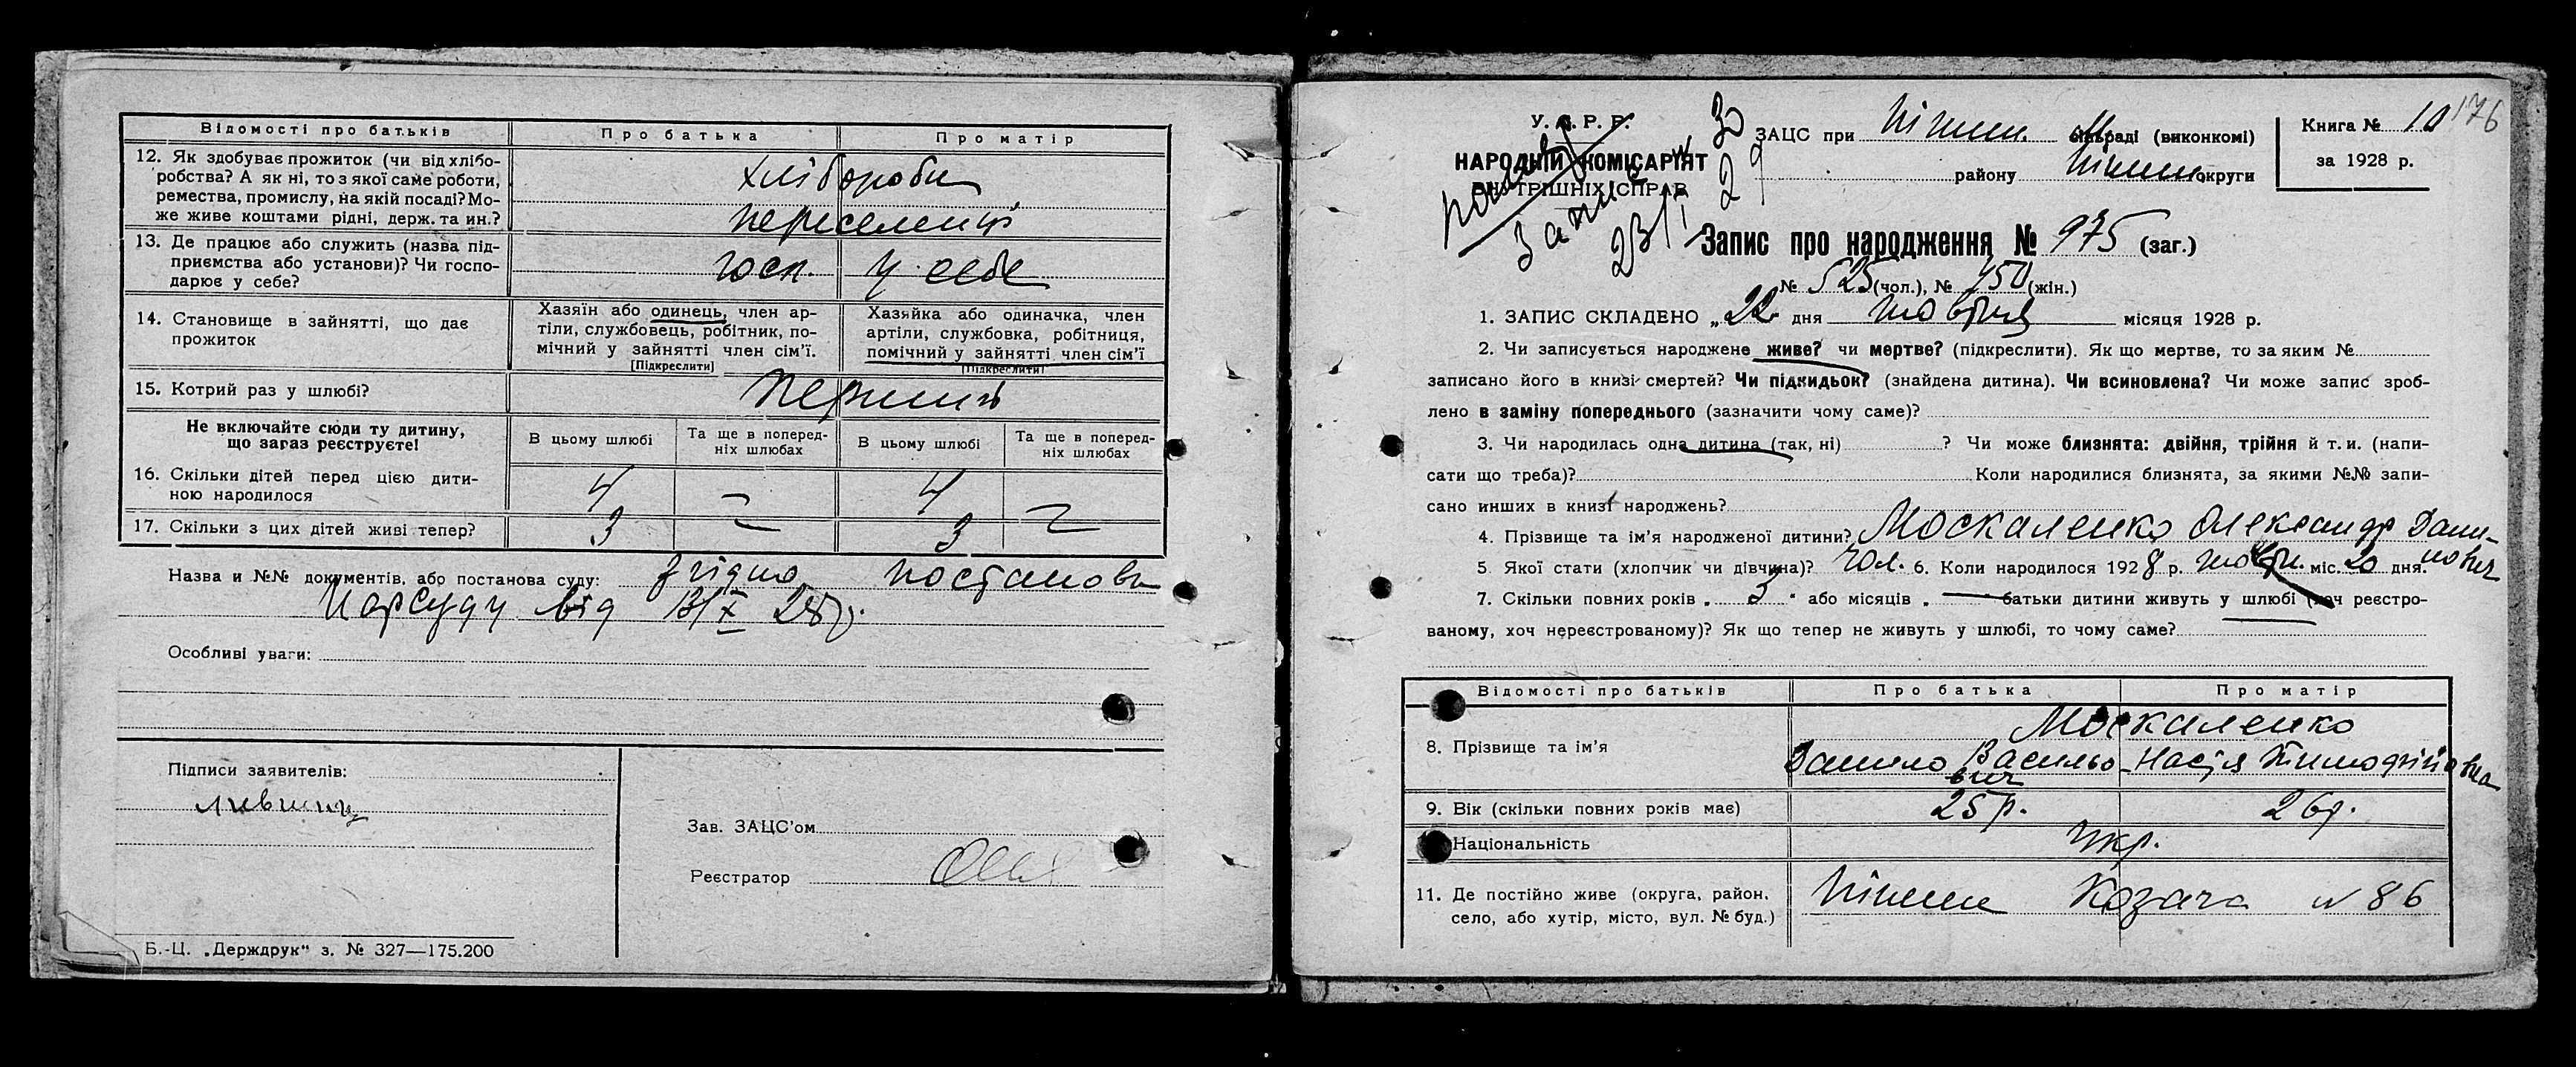 Відомості про батьків Про батька Про матір
12. Як здобуває прожиток (чи від хлібо-
робства? А як ні, то з якої саме роботи,
ремества, промислу, на якій посаді? Мо-
же живе коштами рідні, держ. та ин.?
хлібороби
переселенці
13. Де працює або служить (назва під-
приємства або установи)? Чи госпо-
дарює у себе?
госп. у себе
14. Становище в зайнятті, що дає
прожиток
Хазяїн або одинець, член ар-
тіли, службовець, робітник, по-
мічний у зайнятті член сім'ї.
[Підкреслити]
Хазяйка або одиначка, член
артіли, службовка, робітниця,
помічний у зайнятті член сім'ї
[Підкреслити]
15. Котрий раз у шлюбі? перший
Не включайте сюди ту дитину,
що зараз реєструєте!
В цьому шлюбі
Та ще в поперед-
ніх шлюбах
В цьому шлюбі
Та ще в поперед-
ніх шлюбах
16. Скільки дітей перед цією дити-
ною народилося
4 – 4 –
17. Скільки з цих дітей живі тепер? 3 – 3 –
Назва и №№ документів, або постанова суду: згідно постанови
Нарсуду від 13/X 28 р.
Особливі уваги:
Підписи заявителів:
Зав. ЗАЦС'ом
Реєстратор
Б.-Ц. „Держдрук" з. № 327—175.200
176
У. С. Р. Р.
НАРОДНІЙ КОМІСАРІЯТ
ВНУТРІШНІХ СПРАВ
ЗАЦС при Ніжин. М. раді (виконкомі)
району Ніжин. округи
Книга № 10
за 1928 р.
Запис про народження № 975 (заг.)
№ 525 (чол.), № 450 (жін.)
1. ЗАПИС СКЛАДЕНО „22" дня жовтня місяця 1928 р.
2. Чи записується народжене живе? чи мертве? (підкреслити). Як що мертве, то за яким №
записано його в книзі смертей? Чи підкидьок? (знайдена дитина). Чи всиновлена? Чи може запис зроб-
лено в заміну попереднього (зазначити чому саме)?
3. Чи народилась одна дитина (так, ні) ? Чи може близнята: двійня, трійня й т. и. (напи-
сати що треба)? Коли народилися близнята, за якими №№ запи-
сано инших в книзі народжень?
4. Прізвище та ім'я народженої дитини? Москаленко Олександр Дани-
лович
5 Якої стати (хлопчик чи дівчина)? чол. 6. Коли народилося 1928 р. жовтн. міс. 20 дня.
7. Скільки повних років „ 3 " або місяців „ — " батьки дитини живуть у шлюбі (хоч реєстро-
ваному, хоч нереєстрованому)? Як що тепер не живуть у шлюбі, то чому саме?
Відомості про батьків Про батька Про матір
8. Прізвище та ім'я
Москаленко
Данило Васильо-
вич
Настя Тимофіївна
9. Вік (скільки повних років має) 25 р. 26 р.
Національність Укр.
11. Де постійно живе (округа, район,
село, або хутір, місто, вул. № буд.)
Ніжин Козача № 86